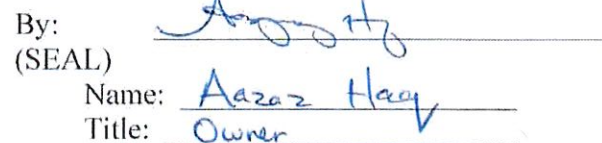 By:
(SEAL)
Name: Aazaz Haq
Title: Owner